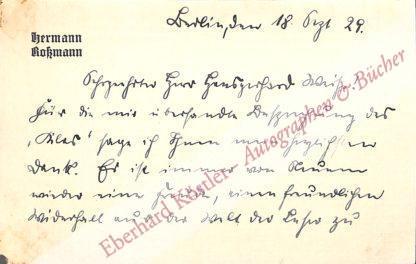 Hermann
Roßmann
Berlin, den 18. Sept 29.
Sehr geehrter Herr Hansgerhard Weiß,
Für die mir übersandte Besprechung des
sage ich Ihnen meinen herzlichsten
Dank. Es ist immer von Neuem
wieder eine Freude, einen freundlichen
Widerhall aus der Welt der Leser zu
Eberhard Köstler - Autographen & Bücher